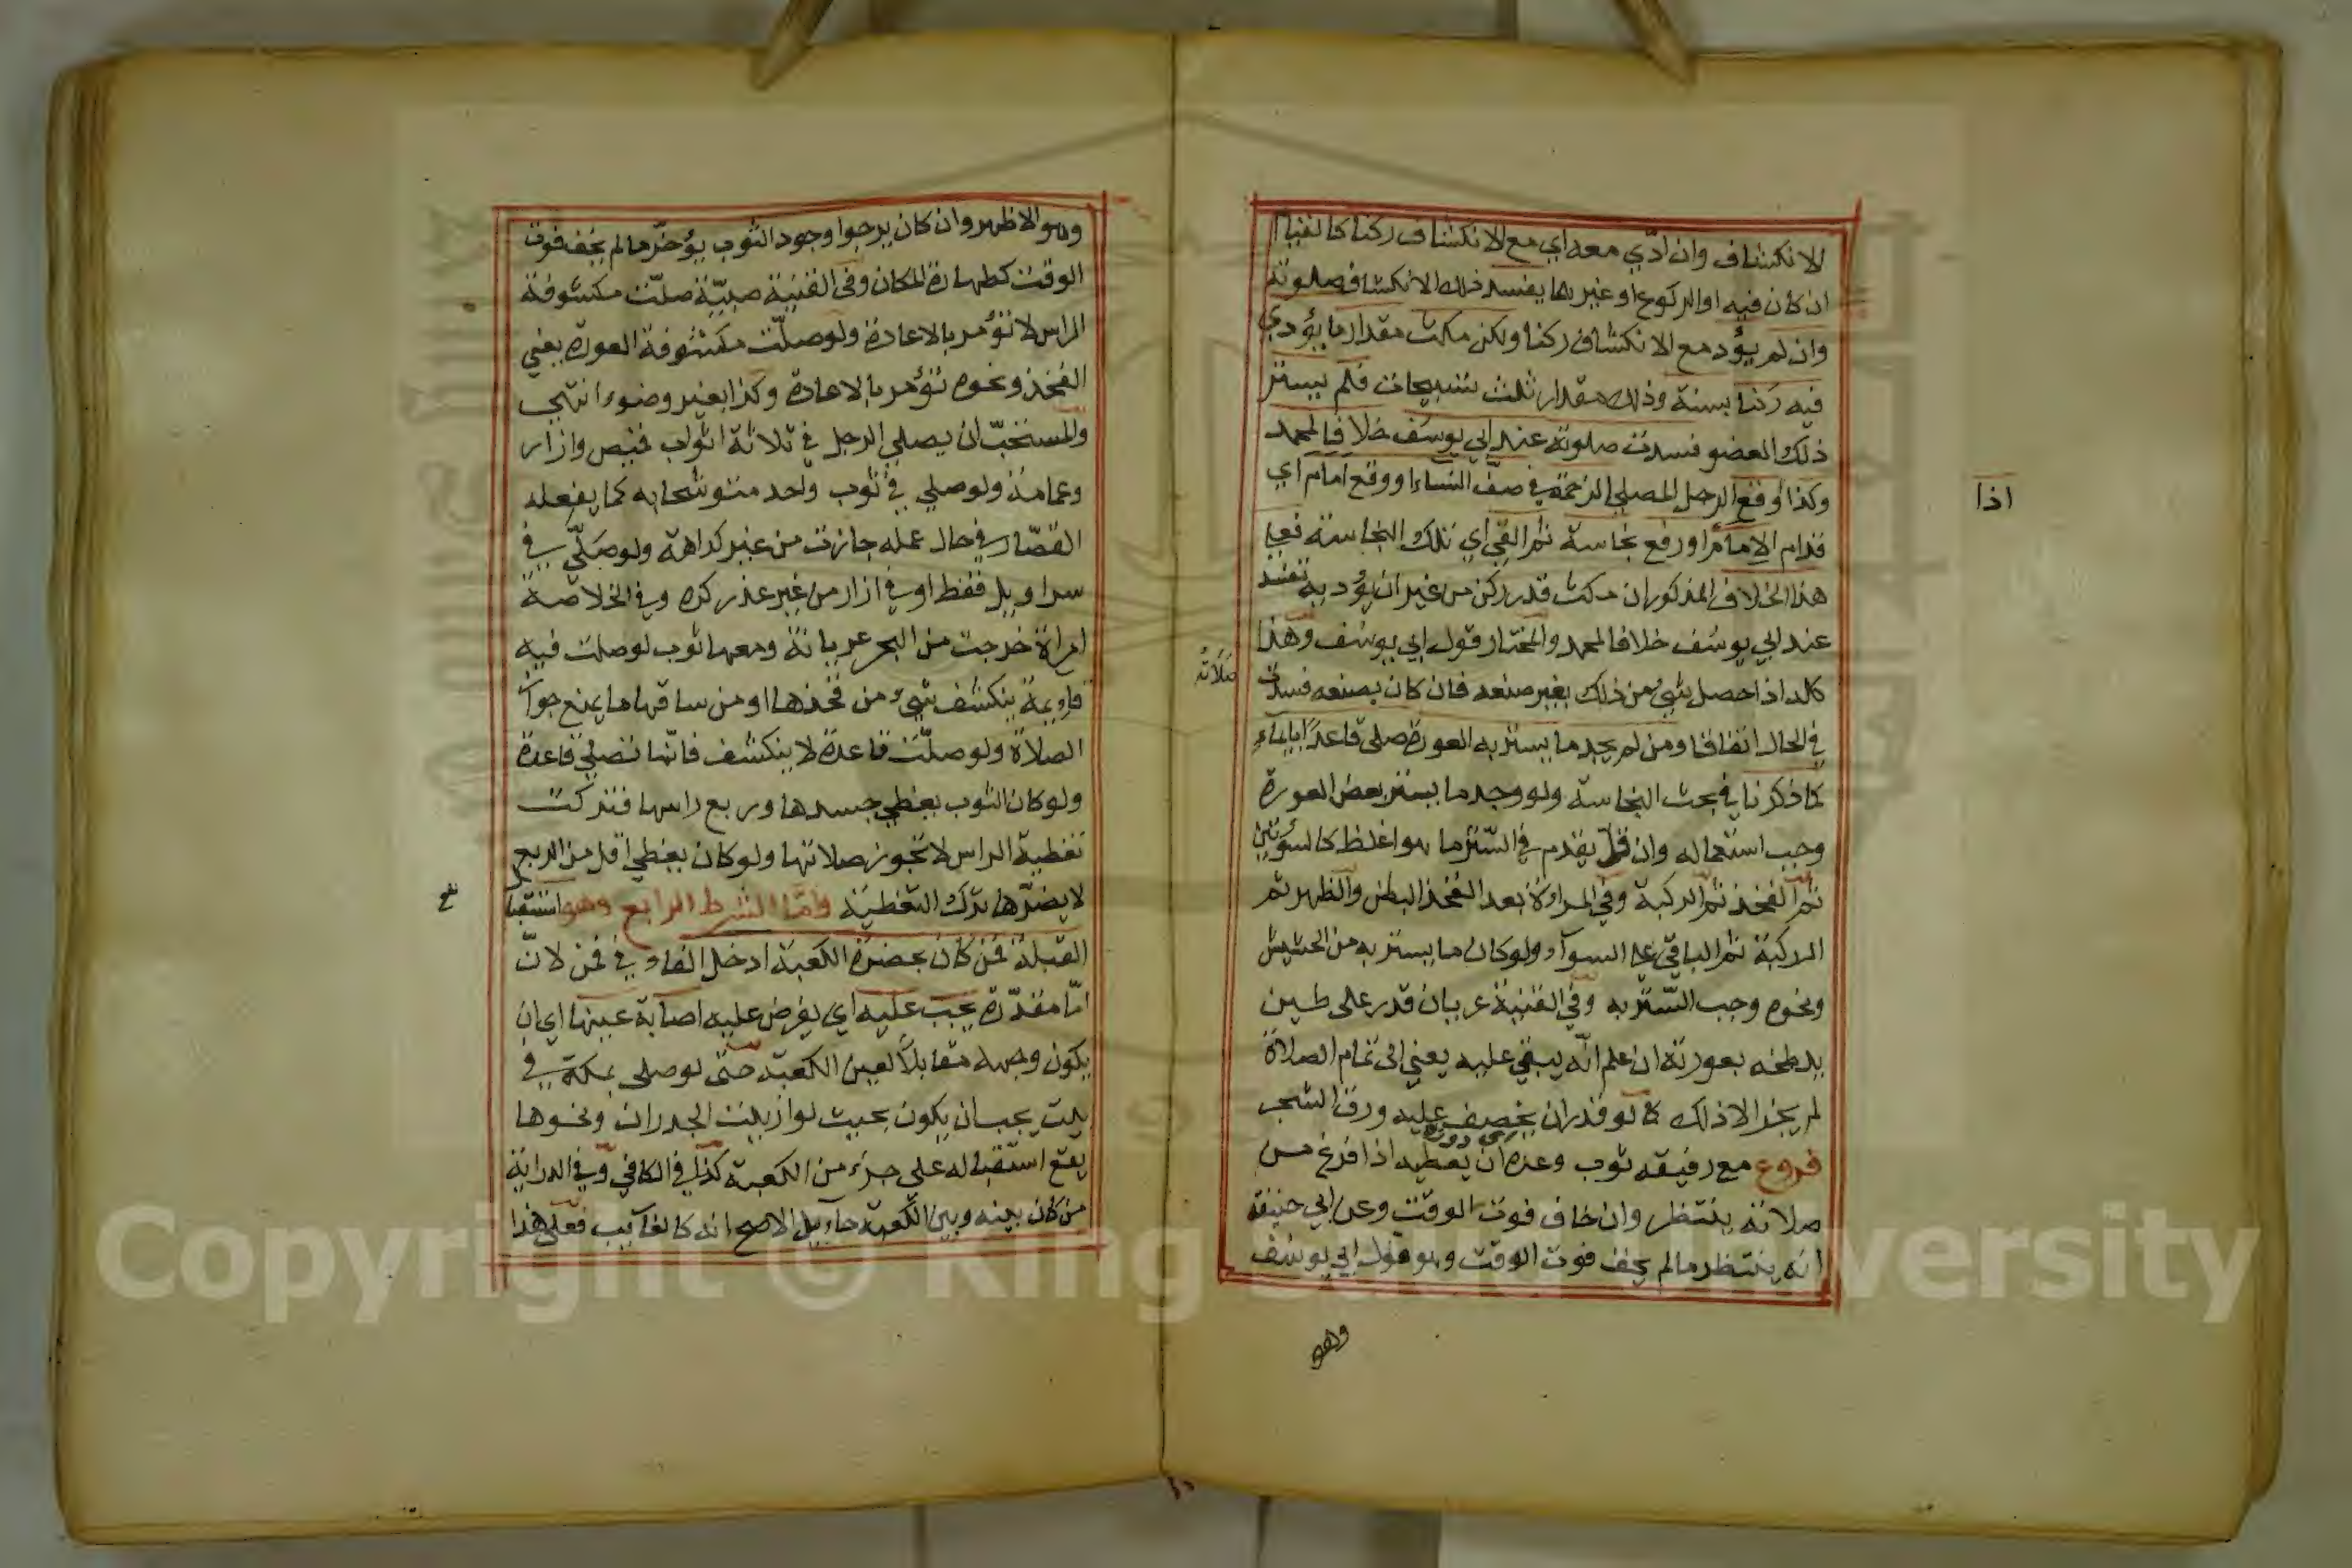 للانكشاف وان ادّي معه اي مع الانكشاف ركنا كالقيام
ان كان فيه او الركوع او غيرهما يفسد ذلك الانكشاف صلوته
وان لم يؤد مع الانكشاف ركنا ولكن مكث مقدار ما يؤدي
فيه ركنا بسنة وذلك مقدار ثلث تسبيحات فلم يستر
ذلك العضو فسدت صلوته عند ابي يوسف خلافا لمحمد
وكذا اوقع الرجل المصلي الزحمة في صف النساء او وقع امام اي
اذا
قدام الامام او رفع نجاسة ثم القي اي تلك النجاسة فعلي
هذا الخلاف المذكور ان مكث قدر ركن من غير ان يؤديه تفسد
عند ابي يوسف خلافا لمحمد والمختار قول ابي يوسف وهذا
كله اذا حصل شئ من ذلك بغير صنعه فان كان بصنعه فسدت
صَلَاتُه
في الحال اتفاقا ومن لم يجد ما يستر به العورة صلى قاعدا بايماء
كما ذكرنا في بحث النجاسة ولو وجد ما يستر بعض العورة
وجب استعماله وان قل يقدم في الستر ما هو اغلظ كالسوئتين
ثم الفخذ ثم الركبة وفي المراة بعد الفخذ البطن والظهر ثم
الركبة ثم الباقي علي السواء ولو كان ما يستر به من الحشيش
ونحوه وجب الستر به وفي القنية عريان قدر على طين
يلطخه بعورته ان علم انّه يبقي عليه يعني الى تمام الصلاة
لم يجز الا ذلك كما لو قدر ان يخصف عليه ورق الشجر
فروع مع رفيقه ثوب وعده ان يعطيه اذا فرغ من
صلاته ينتظر وان خاف فوت الوقت وعن ابي حنيفة
انه ينتظر ما لم يخف فوت الوقت وهو قول ابي يوسف
وهو
وهو الاظهر وان كان يرجوا وجود الثوب يؤخر ما لم يخف فوت
الوقت كطهارة المكان وفى القنية صبيّة صلّت مكشوفة
الراس لا تؤمر بالاعادة ولو صلّت مكشوفة العورة يعني
الفخذ ونحوه تؤمر بالاعادة وكذا بغير وضوء انتهي
والمستحبّ ان يصلي الرجل في ثلاثة اثواب قميص وازار
وعمامة ولو صلي في ثوب واحد متوشحا به كما يفعله
القصّار في حال عمله جازت من غير كراهة ولو صلّي في
سراويل فقط او في ازار من غير عذر كره وفي الخلاصة
امراة خرجت من البحر عريانة ومعها ثوب لو صلت فيه
قايمة ينكشف شئ من فخذها او من ساقها ما يمنع جواز
الصلاة ولو صلّت قاعدة لا ينكشف فانّها تصلي قاعدة
ولو كان الثوب يغطي جسدها وربع راسها فتركت
تغطية الراس لا تجوز صلاتها ولو كان يغطي اقل من الربع
لا يضرّها ترك التغطية وامّا الشرط الرابع وهو استقبال
القبلة فمن كان بحضرة الكعبة ادخل الفاء في فمن لانّ
امّا مقدّرة يجب عليه اي يفرض عليه اصابة عينها اي ان
يكون وجهه مقابلًا لعين الكعبة حتى لو صلى بمكة في
بيت يجب ان يكون بحيث لو ازيلت الجدران ونحوها
يقع استقباله على جزء من الكعبة كذا في الكافي وفي الدراية
من كان بينه وبين الكعبة حايل الاصح انه كالغايب فعلى هذا
Copyright © King Saud University